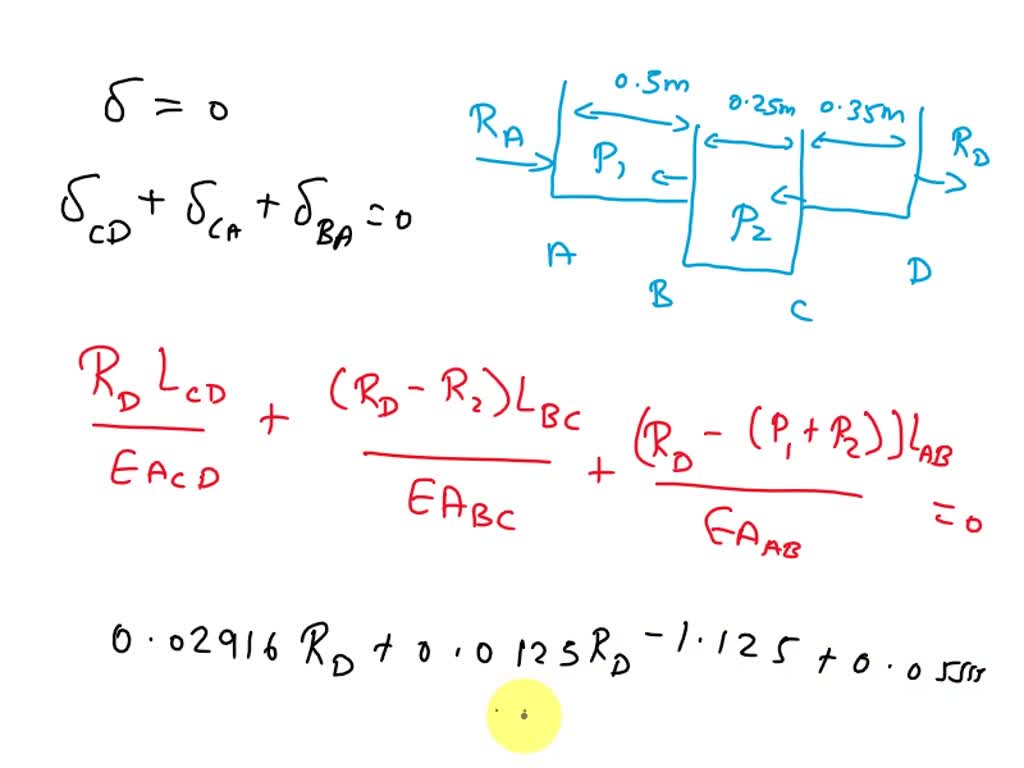 δ = 0
δ_CD + δ_CA + δ_BA = 0
0.5m 0.25m 0.35m
R_A P_1 P_2 R_D
A B C D
R_D L_CD / E A_CD + (R_D - R_2) L_BC / E A_BC + (R_D - (P_1 + P_2)) L_AB / E A_AB = 0
0.02916 R_D + 0.0125 R_D - 1.125 + 0.0555